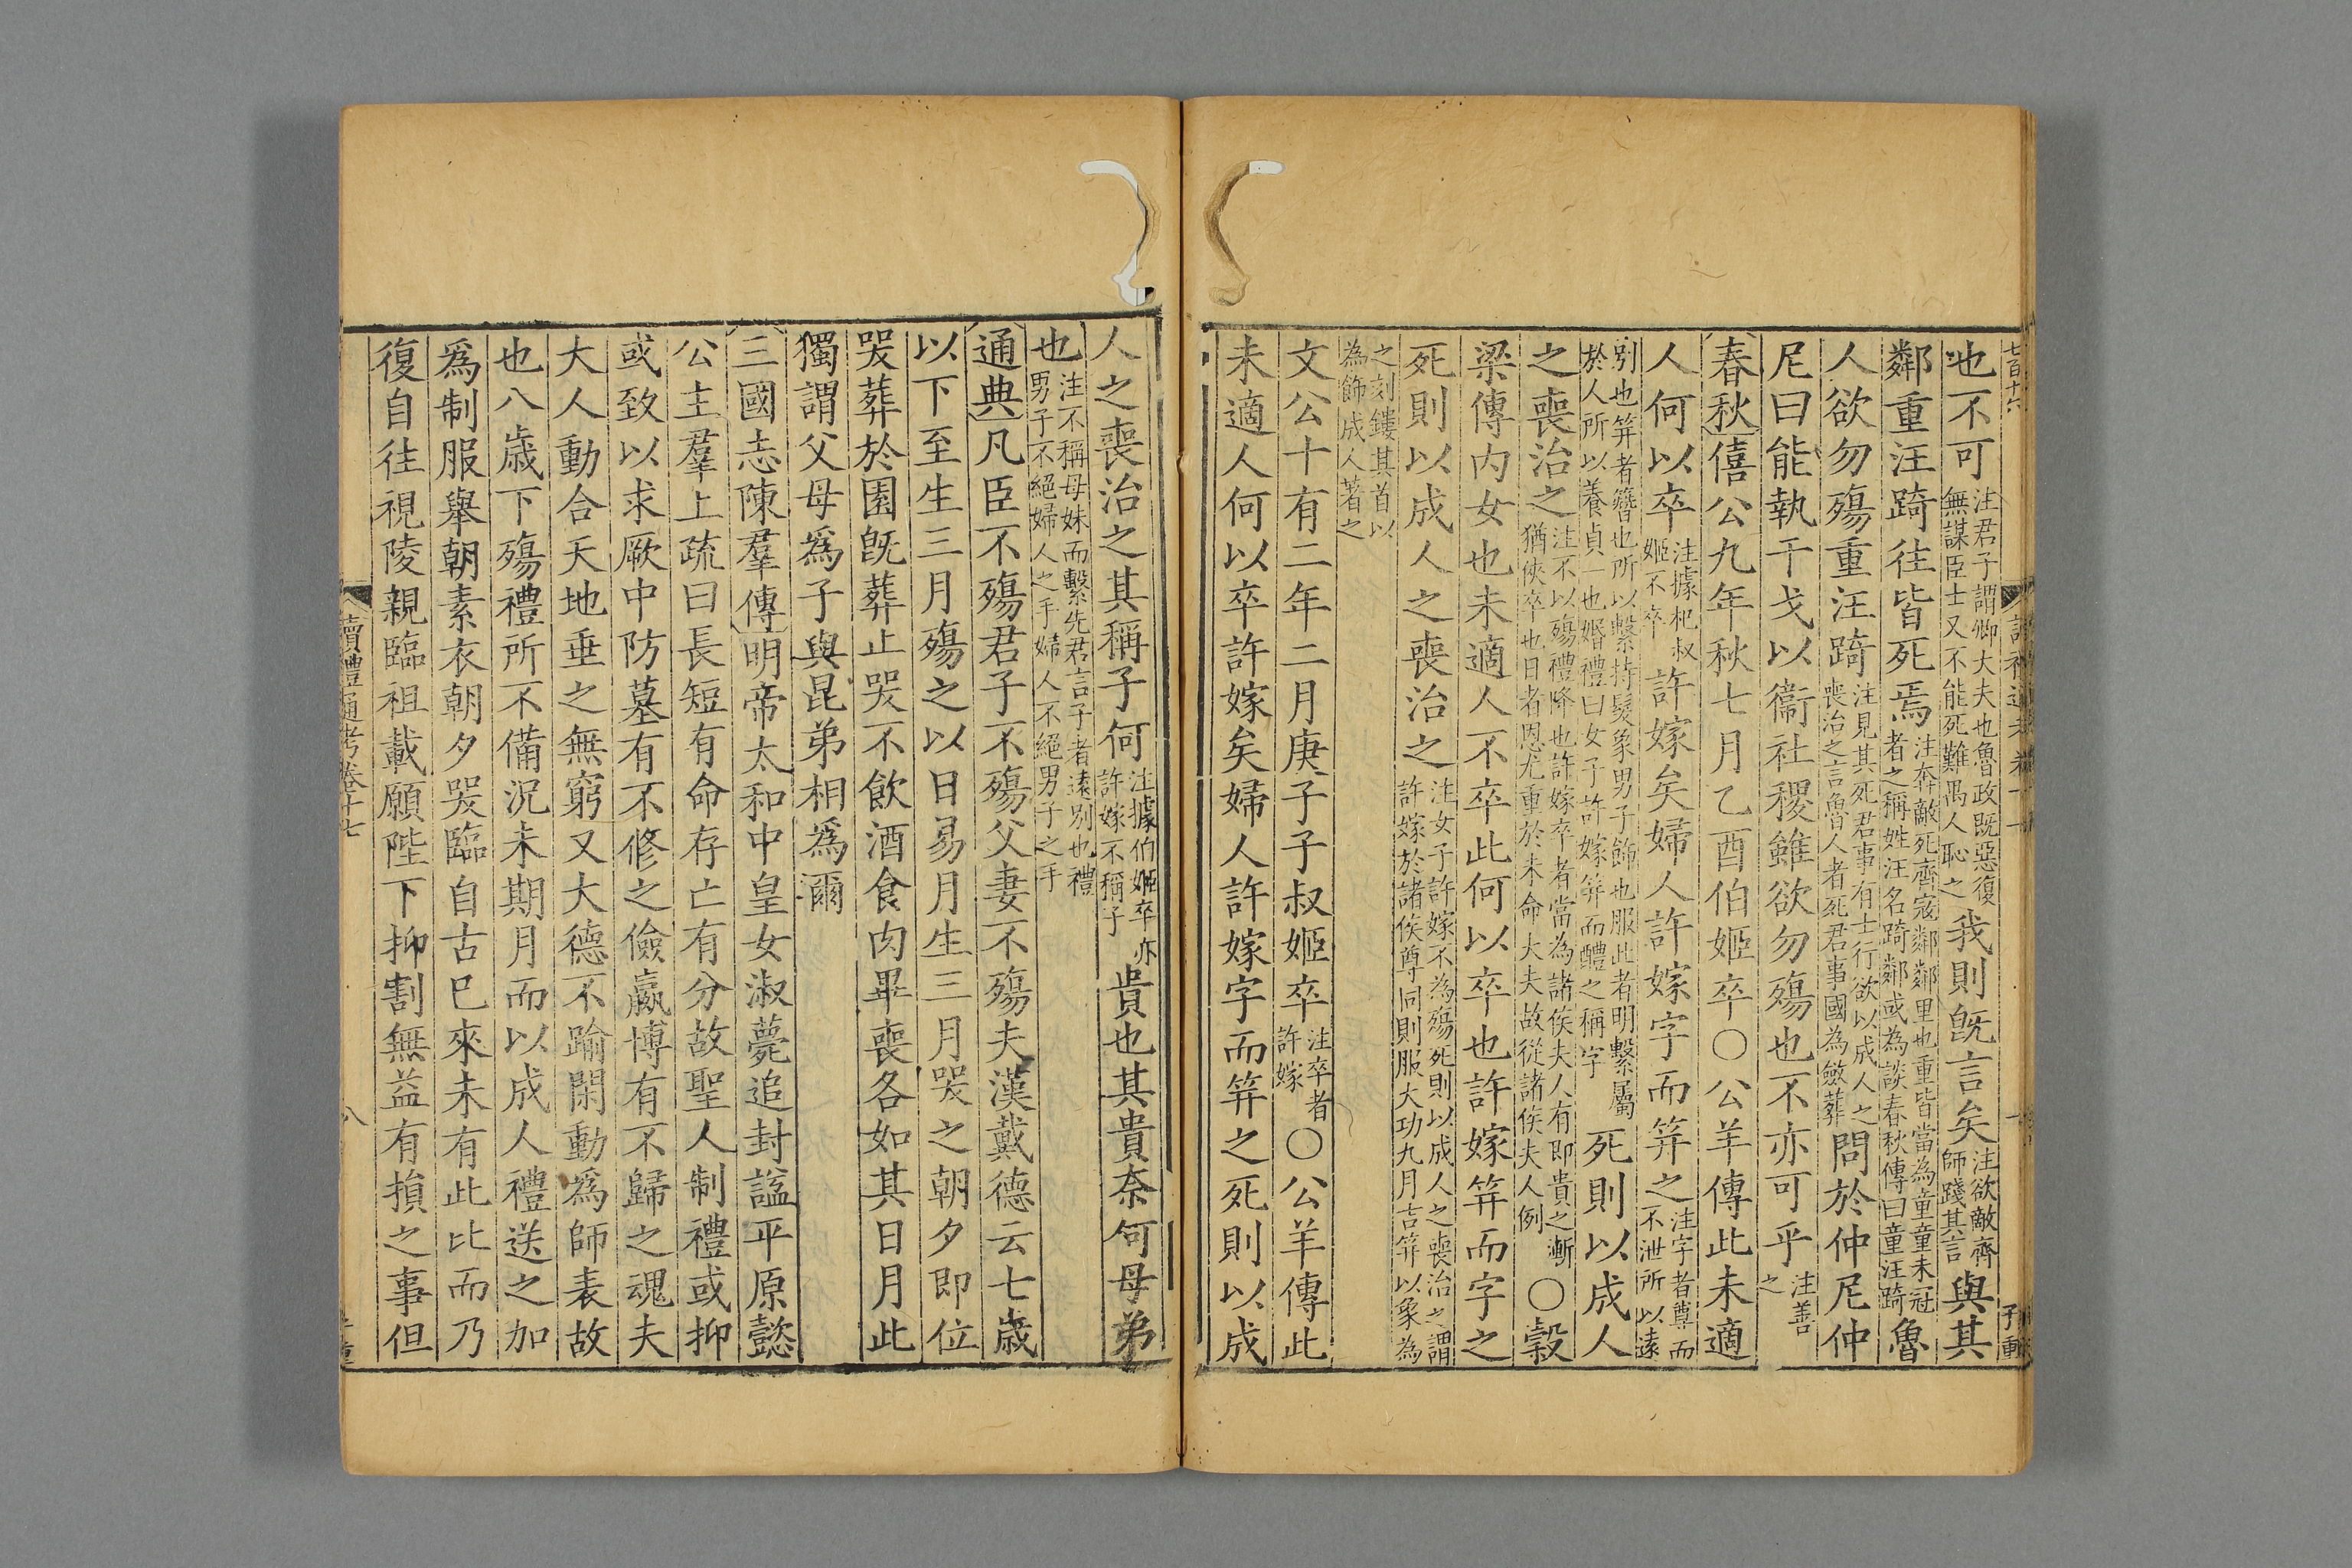 七百十六
也不可注君子謂卿大夫也魯政既惡復無謀臣士又不能死難禺人恥之我則旣言矣注欲敵齊師踐其言與其
鄰重汪踦往皆死焉注奔敵死齊寇鄰鄰里也重皆當為童童未冠者之稱姓汪名踦鄰或為談春秋傳曰童汪踦魯
人欲勿殤重汪踦注見其死君事有士行欲以成人之喪治之言魯人者死君事國為斂葬問於仲尼仲
尼曰能執干戈以衞社稷雖欲勿殤也不亦可乎注善之
春秋僖公九年秋七月乙酉伯姬卒〇公羊傳此未適
人何以卒注據杞叔姬不卒許嫁矣婦人許嫁字而笄之注字者尊而不泄所以遠
別也笄者簪也所以繫持髮象男子飾也服此者明繫屬於人所以養貞一也婚禮曰女子許嫁笄而醴之稱字死則以成人
之喪治之注不以殤禮降也許嫁卒者當為諸侯夫人有即貴之漸猶俠卒也日者恩尤重於未命大夫故從諸侯夫人例〇穀
梁傳內女也未適人不卒此何以卒也許嫁笄而字之
死則以成人之喪治之注女子許嫁不為殤死則以成人之喪治之謂許嫁於諸侯尊同則服大功九月吉笄以象為
之刻鏤其首以為飾成人著之
文公十有二年二月庚子子叔姬卒注卒者許嫁〇公羊傳此
未適人何以卒許嫁矣婦人許嫁字而笄之死則以成
人之喪治之其稱子何注據伯姬卒亦許嫁不稱子貴也其貴奈何母弟
也注不稱母妹而繫先君言子者遠別也禮男子不絕婦人之手婦人不絕男子之手
通典凡臣不殤君子不殤父妻不殤夫漢戴德云七歲
以下至生三月殤之以日易月生三月哭之朝夕即位
哭葬於園旣葬止哭不飲酒食肉畢喪各如其日月此
獨謂父母爲子與昆弟相爲爾
三國志陳羣傳明帝太和中皇女淑薨追封謚平原懿
公主羣上疏曰長短有命存亡有分故聖人制禮或抑
或致以求厥中防墓有不修之儉嬴博有不歸之魂夫
大人動合天地垂之無窮又大德不踰閑動爲師表故
也八歲下殤禮所不備況未期月而以成人禮送之加
爲制服舉朝素衣朝夕哭臨自古已來未有此比而乃
復自往視陵親臨祖載願陛下抑割無益有損之事但
讀禮通考卷十七
八